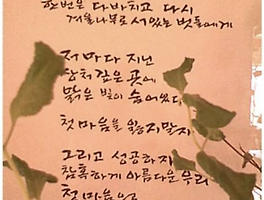 한번은 다 바치고 다시
겨울나무로 서있는 벗들에게
저마다 지닌
상처 깊은 곳에
맑은 빛이 숨어있다
첫마음을 잃지말자
그리고 성공하자
참혹하게 아름다운 우리
첫마음으로